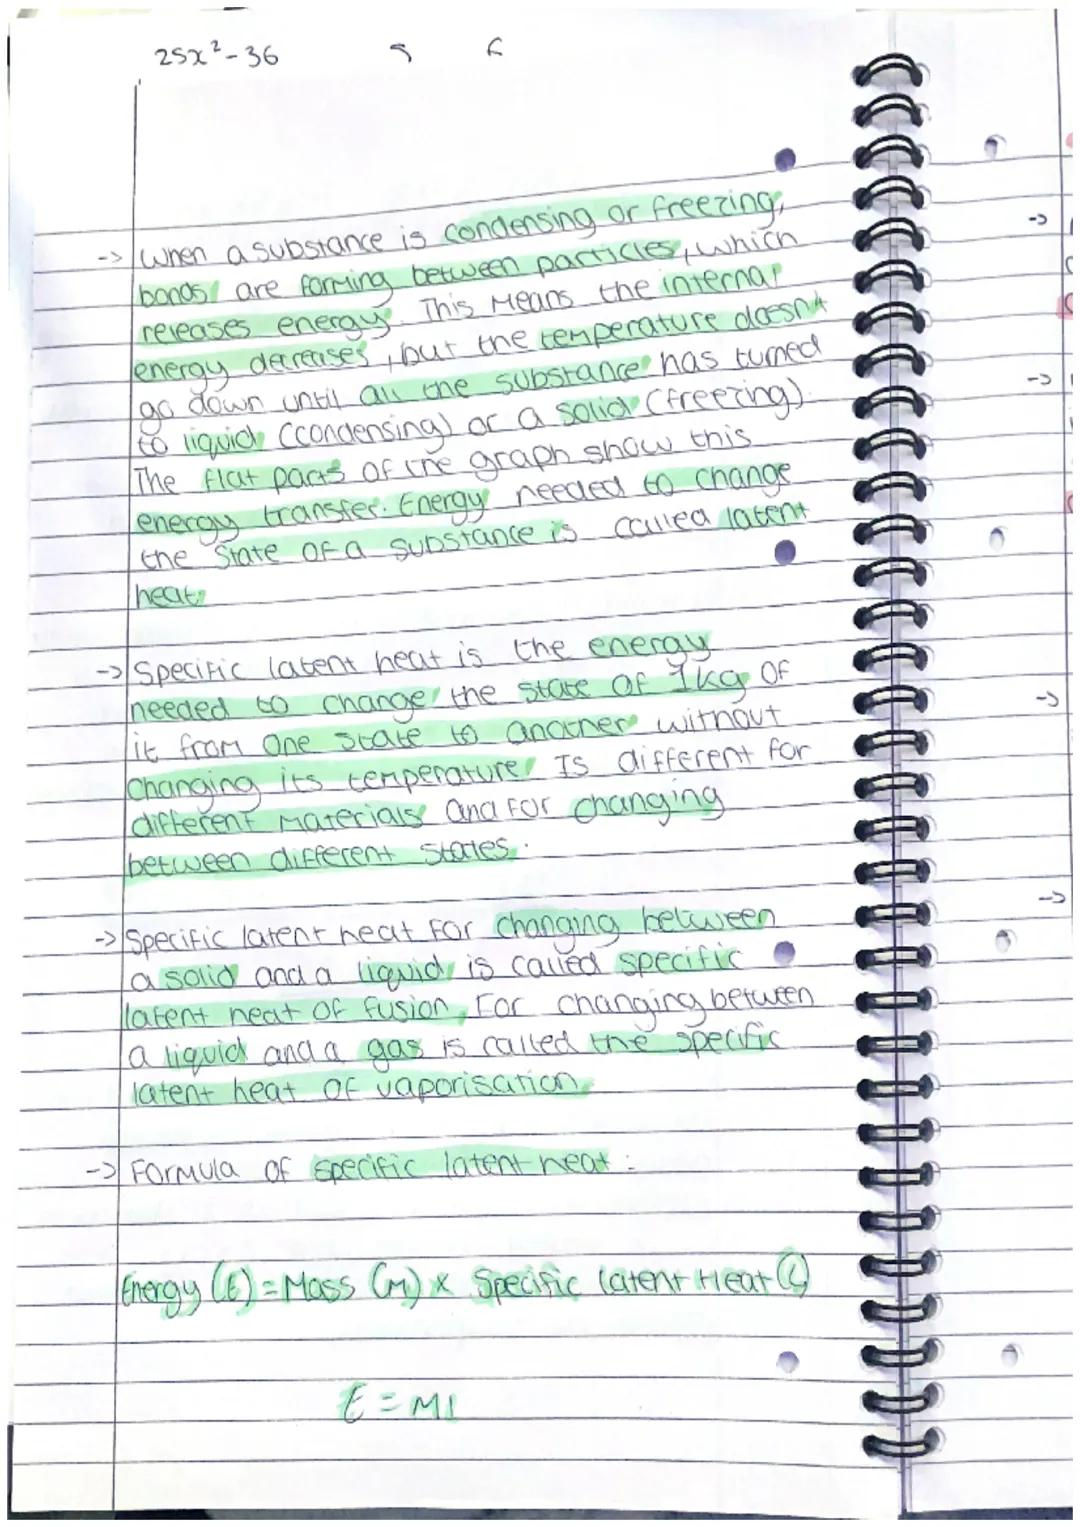 25x²-36
-> When a substance is condensing or freezing,
bonds are forming between particles, which
releases energy. This Means the internal
energy decreases, but the temperature doesn't
go down until all the substance has turned
to liquid (condensing) or a solid (freezing).
The flat parts of the graph show this
energy transfer. Energy needed to change
the State of a substance is called latent
heat.
-> Specific latent heat is the energy
needed to change the state of 1kg of
it from one state to another without
changing its temperature. Is different for
different Materials and for changing
between different states.
-> Specific latent heat for changing between
a solid and a liquid is called specific
latent heat of fusion. For changing between
a liquid and a gas is called the specific
latent heat of vaporisation.
-> Formula of specific latent heat :
Energy (E) = Mass (M) x Specific latent Heat (L)
E = Ml